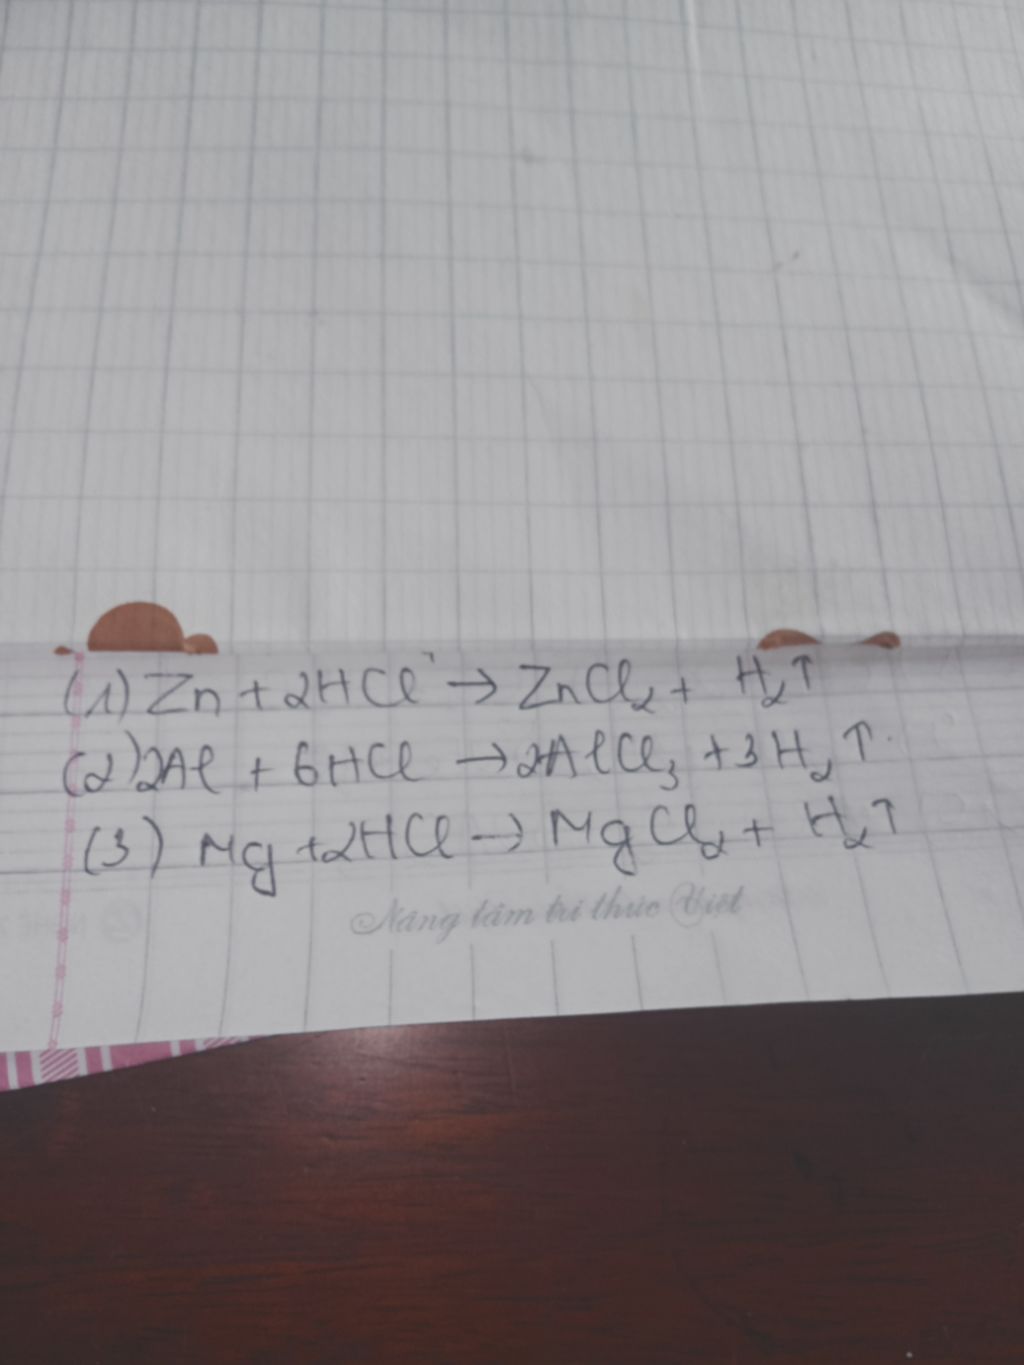 (1) Zn + 2HCl → ZnCl₂ + H₂↑
(2) 2Al + 6HCl → 2AlCl₃ + 3H₂↑
(3) Mg + 2HCl → MgCl₂ + H₂↑
Nâng tầm trí thức Việt